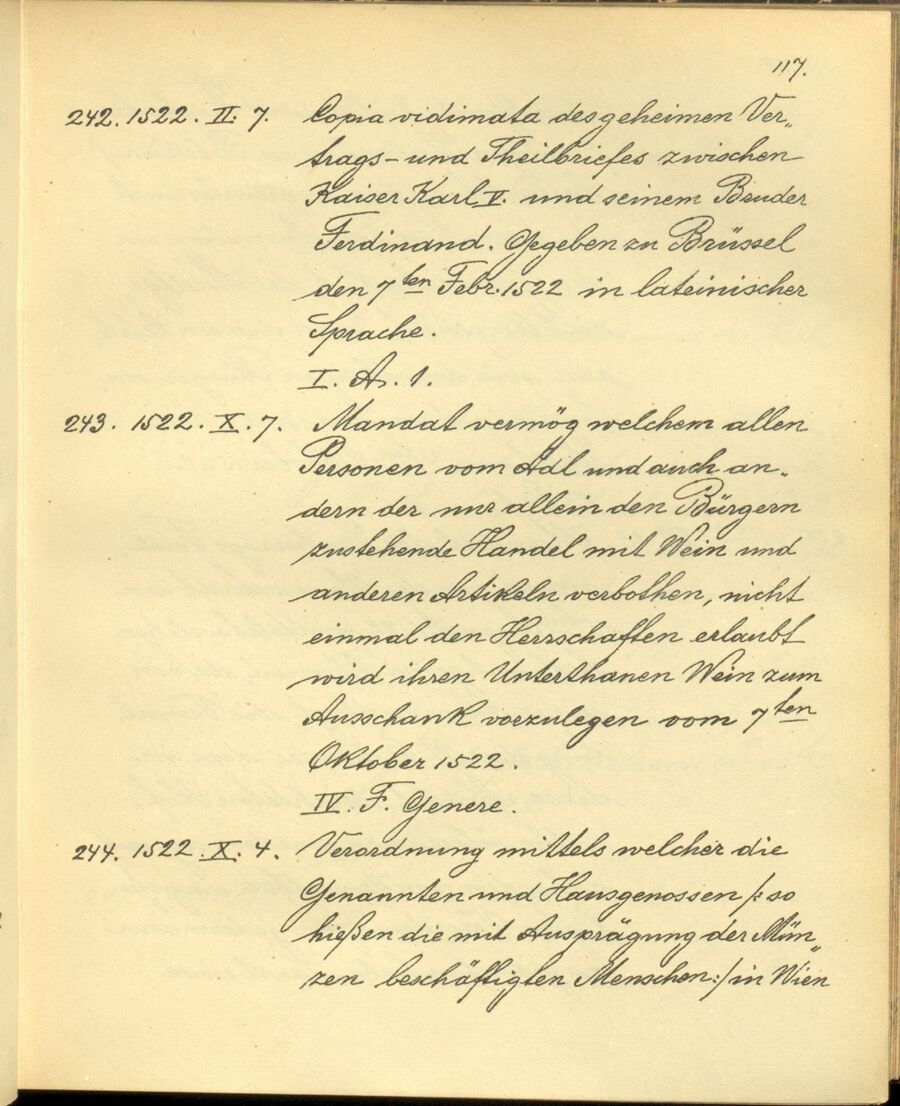 117.
242. 1522. II. 7. Copia vidimata des geheimen Ver„
trags- und Theilbriefes zwischen
Kaiser Karl V. und seinem Bruder
Ferdinand. Gegeben zu Brüssel
den 7ten Febr. 1522 in lateinischer
Sprache.
I. A. 1.
243. 1522. X. 7. Mandat vermög welchem allen
Personen vom Adl und auch an„
dern der nur allein den Bürgern
zustehende Handel mit Wein und
anderen Artikeln verbothen, nicht
einmal den Herrschaften erlaubt
wird ihren Unterthanen Wein zum
Ausschank vorzulegen vom 7ten
Oktober 1522.
IV. F. Genere.
244. 1522. X. 4. Verordnung mittels welcher die
Genannten und Hausgenossen /: so
hießen die mit Ausprägung der Mün„
zen beschäftigten Menschen :/ in Wien